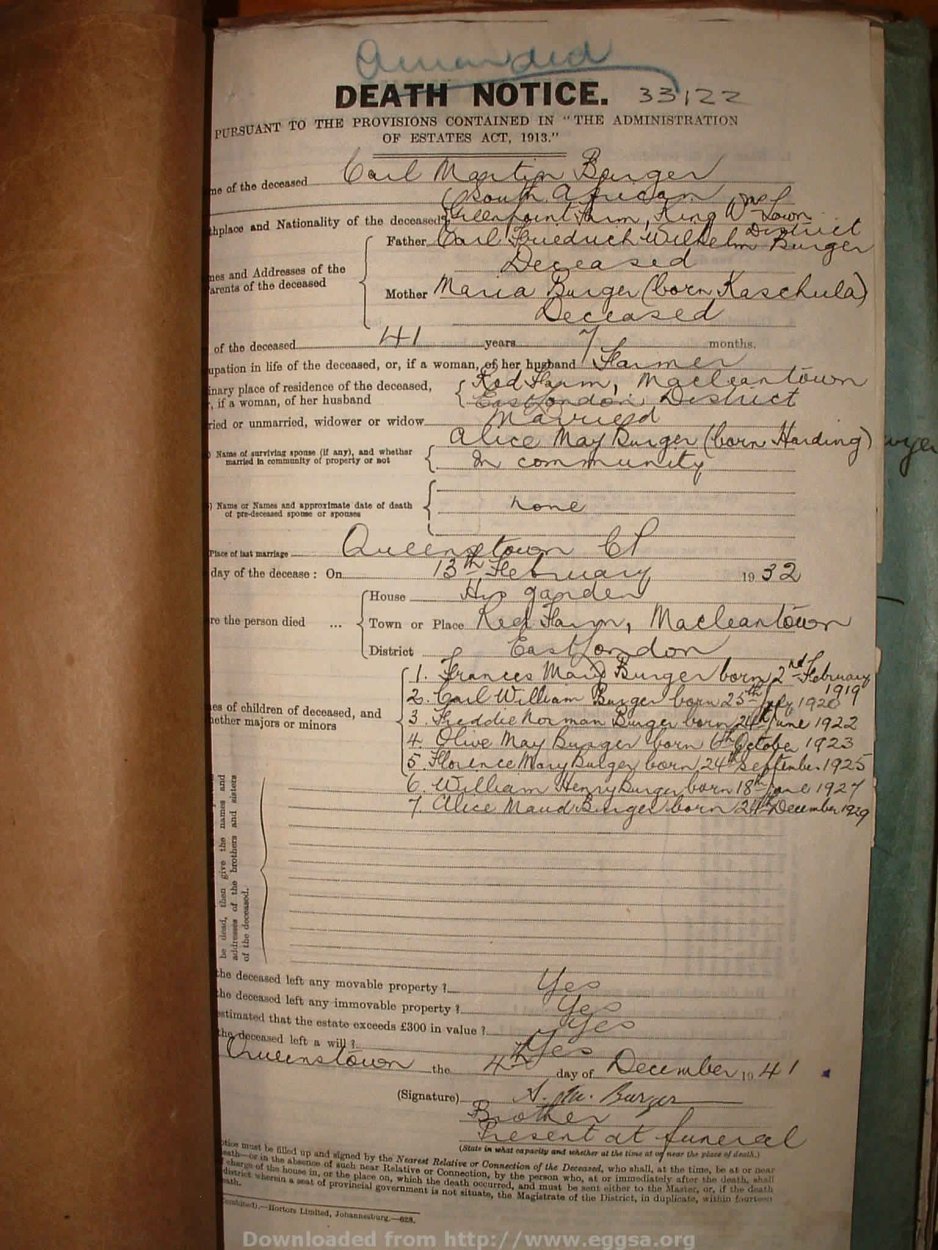 Amended
DEATH NOTICE. 33122
PURSUANT TO THE PROVISIONS CONTAINED IN "THE ADMINISTRATION
OF ESTATES ACT, 1913."
me of the deceased Carl Martin Burger
South African
thplace and Nationality of the deceased Greenpoint Farm, King Wms Town
District
Father Carl Friedrich Wilhelm Burger
Deceased
mes and Addresses of the
arents of the deceased
Mother Maria Burger (born Kaschula)
Deceased
of the deceased 41 years 7 months.
upation in life of the deceased, or, if a woman, of her husband Farmer
inary place of residence of the deceased,
, if a woman, of her husband
Red Farm, Macleantown
East London District
ried or unmarried, widower or widow Married
) Name of surviving spouse (if any), and whether
married in community of property or not
Alice May Burger (born Harding)
In community
) Name or Names and approximate date of death
of pre-deceased spouse or spouses
none
Place of last marriage Queenstown CP
day of the decease: On 13th February 1932
House His garden
re the person died ... Town or Place Red Farm, Macleantown
District East London
es of children of deceased, and
hether majors or minors
1. Frances Burger born 2nd February
1919
2. Carl William Burger born 25th July 1920
3. Freddie Norman Burger born 24th June 1922
4. Olive May Burger born 6th October 1923
5. Florence Mary Burger born 24th September 1925
6. William Henry Burger born 18th June 1927
7 Alice Maud Burger born 24th December 1929
be dead, then give the names and
addresses of the brothers and sisters
of the deceased.
the deceased left any movable property ? Yes
the deceased left any immovable property ? Yes
stimated that the estate exceeds £300 in value ? Yes
the deceased left a will ? Yes
Queenstown the 4th day of December 1941
(Signature) Burger
Brother
Present at funeral
(State in what capacity and whether at the time at or near the place of death.)
otice must be filled up and signed by the Nearest Relative or Connection of the Deceased, who shall, at the time, be at or near
eath—or in the absence of such near Relative or Connection, by the person who, at or immediately after the death, shall
charge of the house in, or the place on, which the death occurred, and must be sent either to the Master, or, if the death
district wherein a seat of provincial government is not situate, the Magistrate of the District, in duplicate, within fourteen
eath.
Hortors Limited, Johannesburg.—628.
Downloaded from http://www.eggsa.org